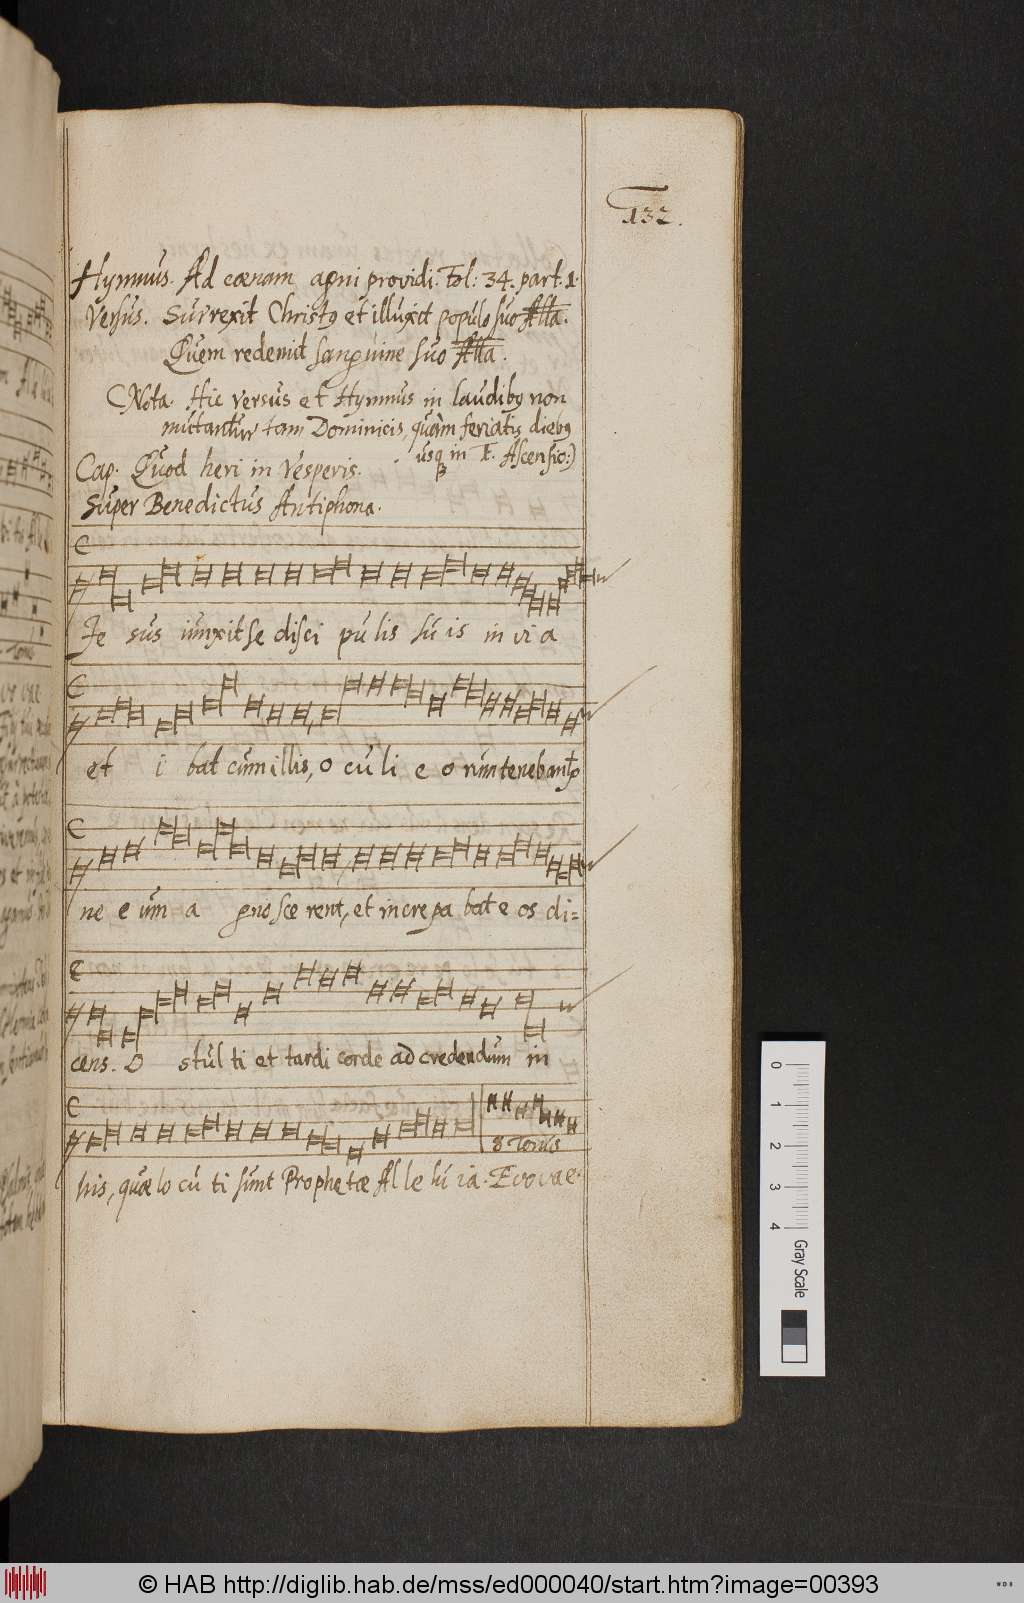 132.
Hymnus. Ad cœnam agni providi. Fol: 34. part. 1.
Versus. Surrexit Christꝰ et illuxit populo suo Alla.
Quem redemit sanguine suo Alla.
Nota. Hic versus et Hymnus in laudibꝰ non
mutantur tam Dominicis, quàm feriatis diebꝰ
usq in F. Ascensio:)
Cap. Quod heri in Vesperis.
Super Benedictus Antiphona.
Je sus iunxit se disci pu lis su is in vi a
et i bat cum illis, o cu li e o rum tenebant
ne e um a gno sce rent, et increpa bat e os di=
cens. O stul ti et tardi corde ad credendum in
8 Tonus
his, quæ lo cu ti sunt Prophetæ Al le lu ia. Evovae.
0
1
2
3
4
Gray Scale
© HAB http://diglib.hab.de/mss/ed000040/start.htm?image=00393
WDB